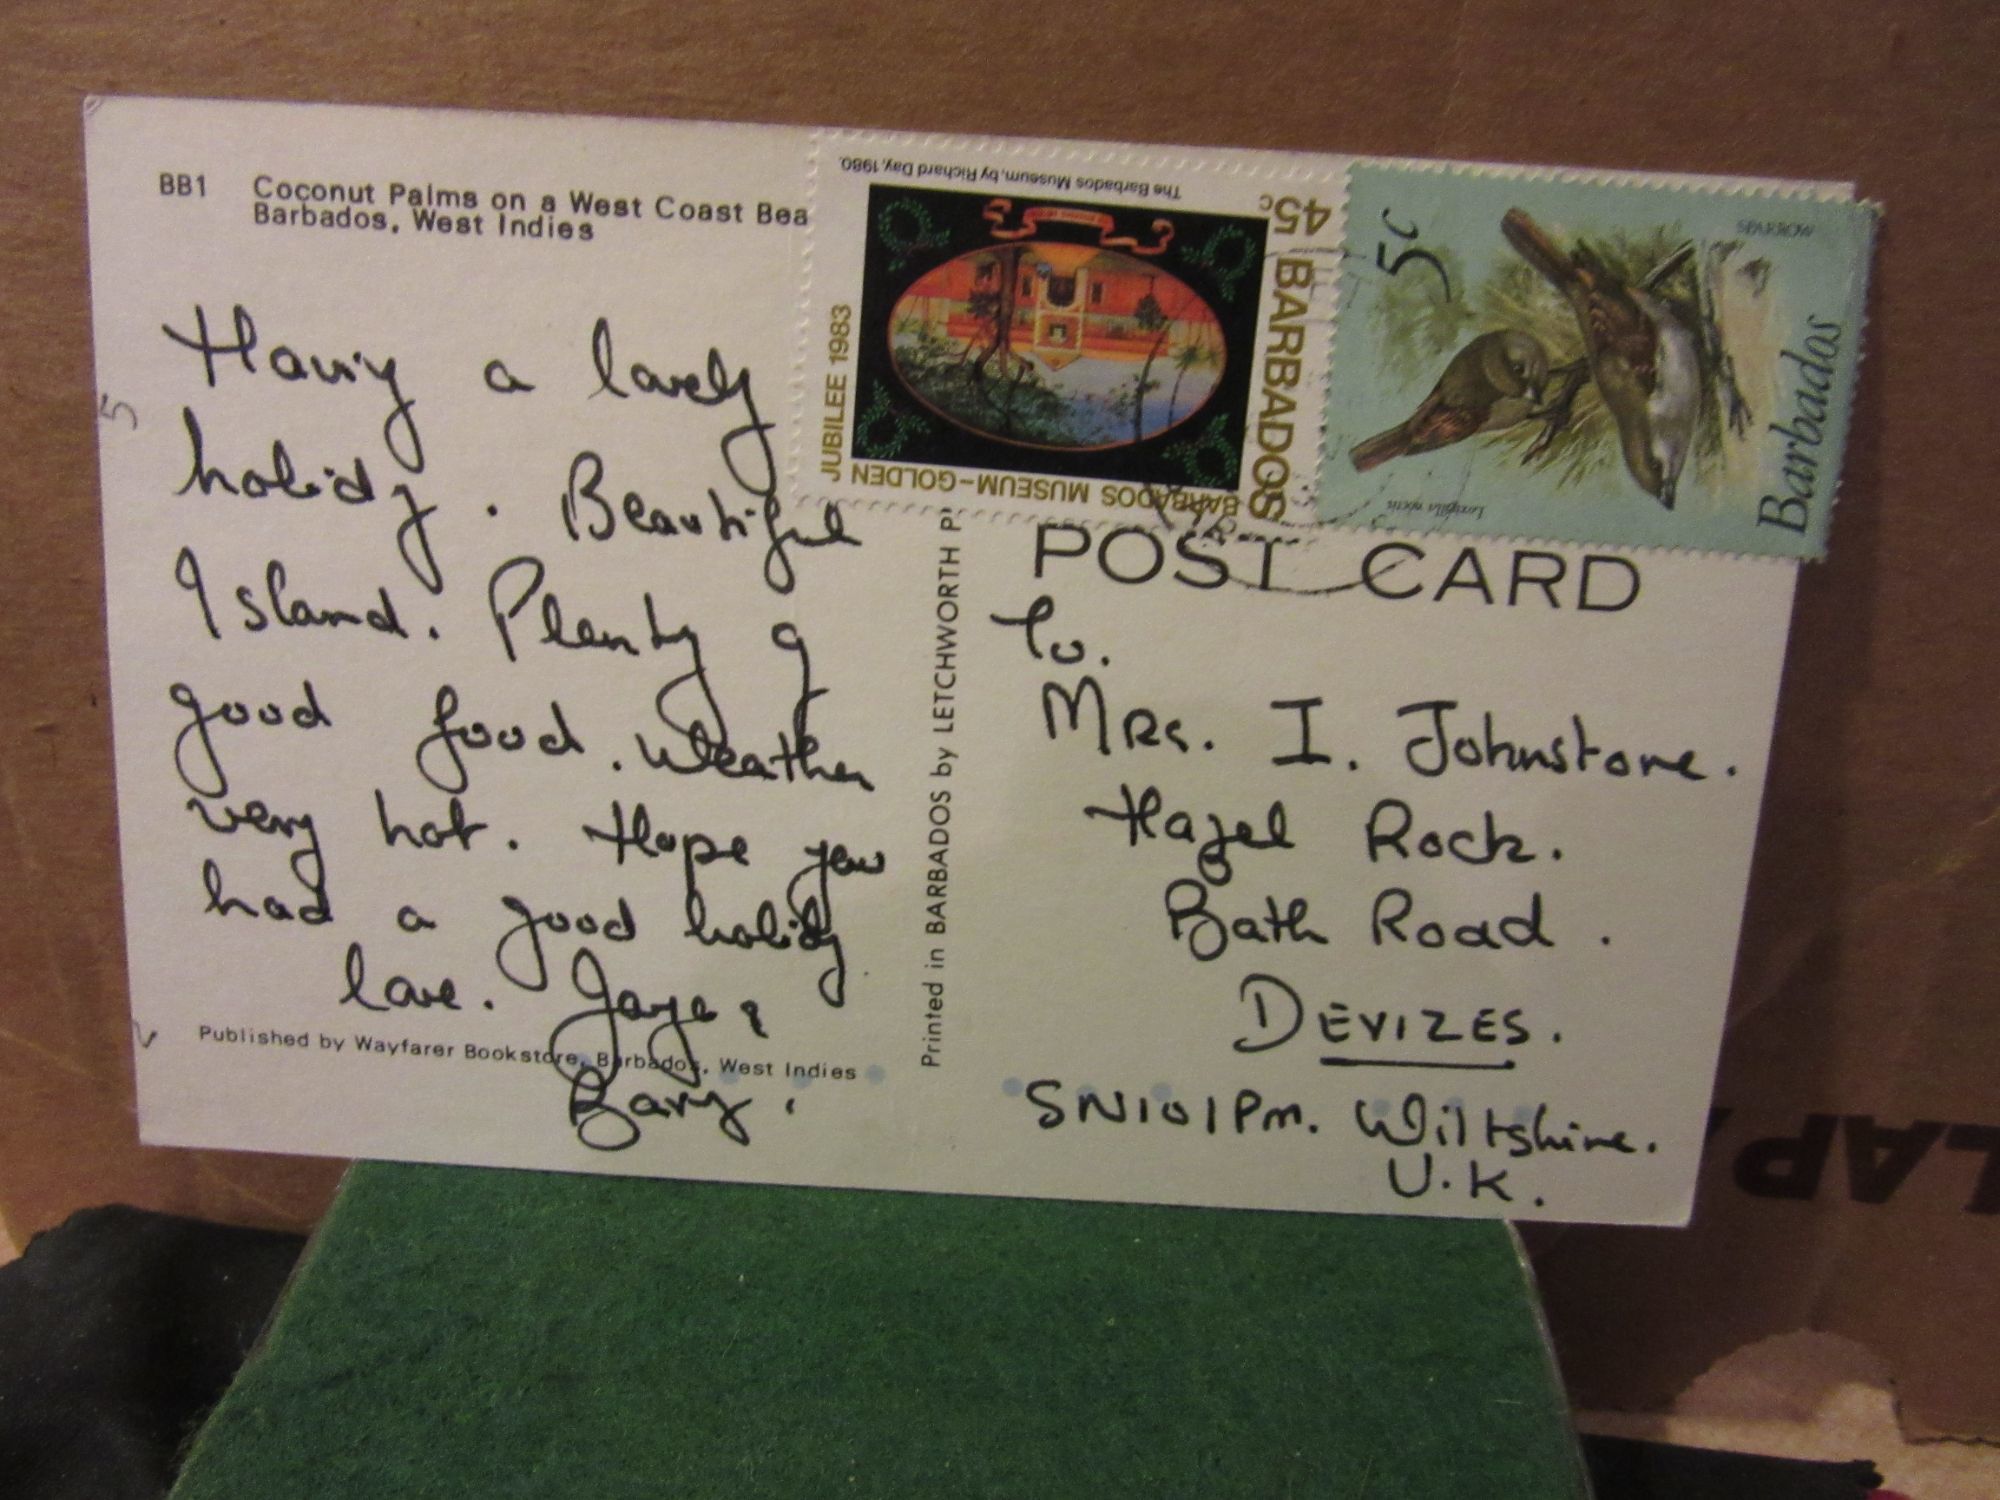 BB1 Coconut Palms on a West Coast Bea
Barbados, West Indies
Having a lovely
holiday. Beautiful
Island. Plenty of
good food. Weather
very hot. Hope you
had a good holiday
love. Jaye &
Barry.
Published by Wayfarer Bookstore, Barbados, West Indies
Printed in BARBADOS by LETCHWORTH P
The Barbados Museum, by Richard Day, 1980.
45c BARBADOS
BARBADOS MUSEUM-GOLDEN
JUBILEE 1983
5c
SPARROW
Barbados
Loxigilla noctis
POST CARD
To.
Mrs. I. Johnstone.
Hazel Rock.
Bath Road.
DEVIZES.
SN101PM. Wiltshire.
U.K.
LAP